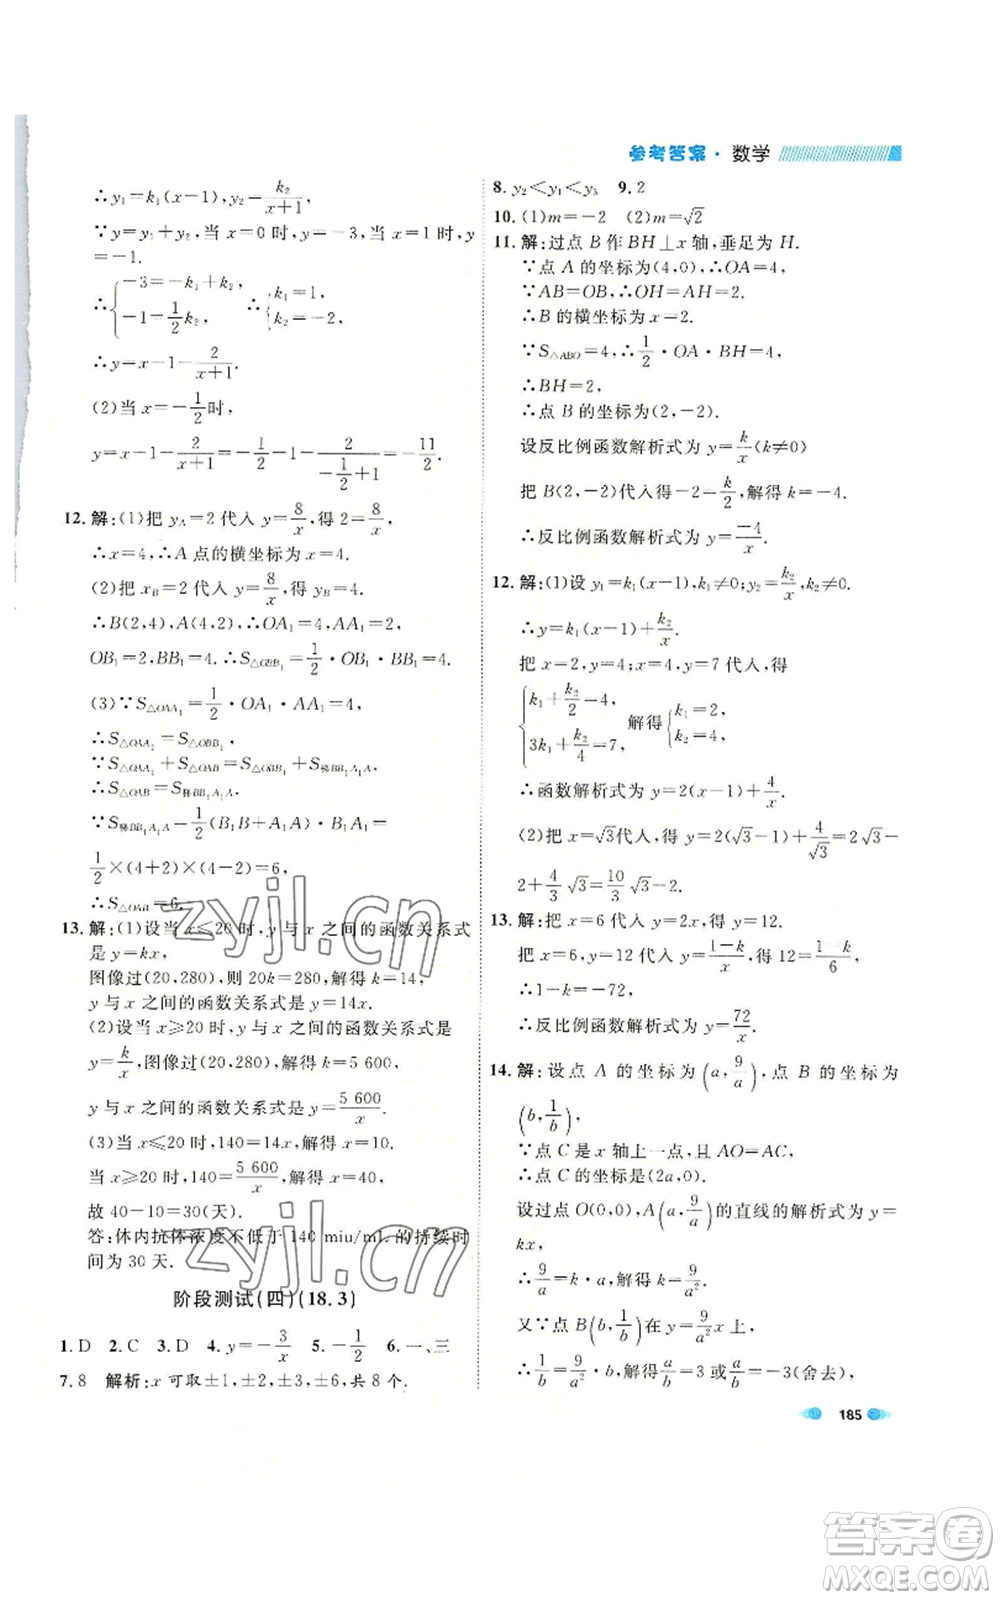 参考答案·数学
∴y₁=k₁(x-1),y₂=k₂/(x+1),
∵y=y₁+y₂,当 x=0 时,y=-3,当 x=1 时,y
=-1.
∴{-3=-k₁+k₂, -1=1/2 k₂, ∴{k₁=1, k₂=-2.
∴y=x-1-2/(x+1).
(2)当 x=-1/2时,
y=x-1-2/(x+1)=-1/2-1-2/(-1/2+1)=-11/2.
12.解:(1)把 y_A=2 代入 y=8/x,得 2=8/x,
∴x=4,∴A 点的横坐标为 x=4.
(2)把 x_B=2 代入 y=8/x,得 y_B=4.
∴B(2,4),A(4,2),∴OA₁=4,AA₁=2,
OB₁=2,BB₁=4. ∴S△OBB₁=1/2·OB₁·BB₁=4.
(3)∵S△OAA₁=1/2·OA₁·AA₁=4,
∴S△OAA₁=S△OBB₁,
∵S△OAA₁+S△OAB=S△OBB₁+S梯BB₁A₁A,
∴S△OAB=S梯BB₁A₁A.
∵S梯BB₁A₁A=1/2(B₁B+A₁A)·B₁A₁=
1/2×(4+2)×(4-2)=6,
∴S△OAB=6.
13.解:(1)设当 x≤20 时,y 与 x 之间的函数关系式
是 y=kx,
图像过(20,280),则 20k=280,解得 k=14,
y 与 x 之间的函数关系式是 y=14x.
(2)设当 x≥20 时,y 与 x 之间的函数关系式是
y=k/x,图像过(20,280),解得 k=5 600,
y 与 x 之间的函数关系式是 y=5 600/x.
(3)当 x≤20 时,140=14x,解得 x=10.
当 x≥20 时,140=5 600/x,解得 x=40,
故 40-10=30(天).
答:体内抗体浓度不低于 140 miu/mL 的持续时
间为 30 天.
阶段测试(四)(18.3)
1.D 2.C 3.D 4.y=-3/x 5.-1/2 6.一、三
7.8 解析:x 可取±1,±2,±3,±6,共 8 个.
8.y₂<y₁<y₃ 9.2
10.(1)m=-2 (2)m=√2
11.解:过点 B 作 BH⊥x 轴,垂足为 H.
∵点 A 的坐标为(4,0),∴OA=4,
∵AB=OB,∴OH=AH=2.
∴B 的横坐标为 x=2.
∵S△ABO=4,∴1/2·OA·BH=4,
∴BH=2.
∴点 B 的坐标为(2,-2).
设反比例函数解析式为 y=k/x(k≠0)
把 B(2,-2)代入得-2=k/2,解得 k=-4,
∴反比例函数解析式为 y=-4/x.
12.解:(1)设 y₁=k₁(x-1),k₁≠0;y₂=k₂/x,k₂≠0.
∴y=k₁(x-1)+k₂/x.
把 x=2,y=4;x=4,y=7 代入,得
{k₁+k₂/2=4, 3k₁+k₂/4=7, 解得{k₁=2, k₂=4,
∴函数解析式为 y=2(x-1)+4/x.
(2)把 x=√3代入,得 y=2(√3-1)+4/√3=2√3-
2+4/3 √3=10/3 √3-2.
13.解:把 x=6 代入 y=2x,得 y=12.
把 x=6,y=12 代入 y=(1-k)/x,得 12=(1-k)/6,
∴1-k=-72,
∴反比例函数解析式为 y=72/x.
14.解:设点 A 的坐标为(a,9/a),点 B 的坐标为
(b,1/b)
∵点 C 是 x 轴上一点,且 AO=AC,
∴点 C 的坐标是(2a,0).
设过点 O(0,0),A(a,9/a)的直线的解析式为 y=
kx,
∴9/a=k·a,解得 k=9/a².
又∵点 B(b,1/b)在 y=9/a² x上,
∴1/b=9/a²·b,解得a/b=3或a/b=-3(舍去),
185
zyjl.cn
zyjl.cn
答案卷
MXQE.COM